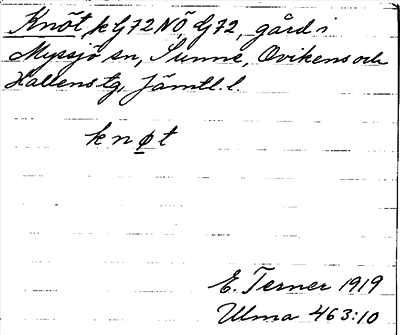 Knöt, k G72NÖ, G72, gård i
Myssjö sn, Sunne, Ovikens och
Hallens tg, Jämtl. l.
knøt
E. Terner 1919
Ulma 463:10